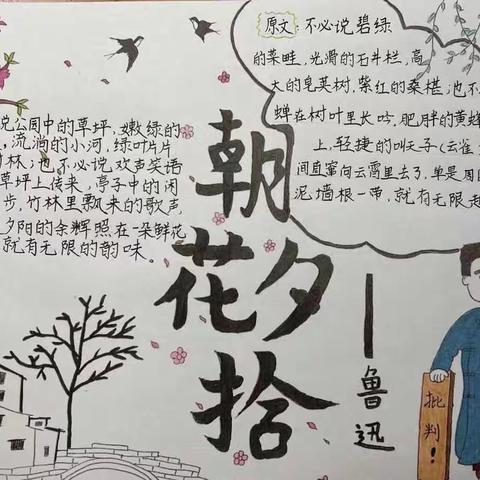 原文：不必说碧绿
的菜畦，光滑的石井栏，高
大的皂荚树，紫红的桑椹；也不
蝉在树叶里长吟，肥胖的黄蜂
上，轻捷的叫天子（云雀
间直窜向云霄里去了，单是周
泥墙根一带，就有无限
说公园中的草坪，嫩绿的
，流淌的小河，绿叶片片
竹林；也不必说欢声笑语
草坪上传来，亭子中的闲
步，竹林里飘来的歌声
夕阳的余辉照在一朵鲜花
就有无限的韵味。
朝花夕拾
—鲁迅
批判！